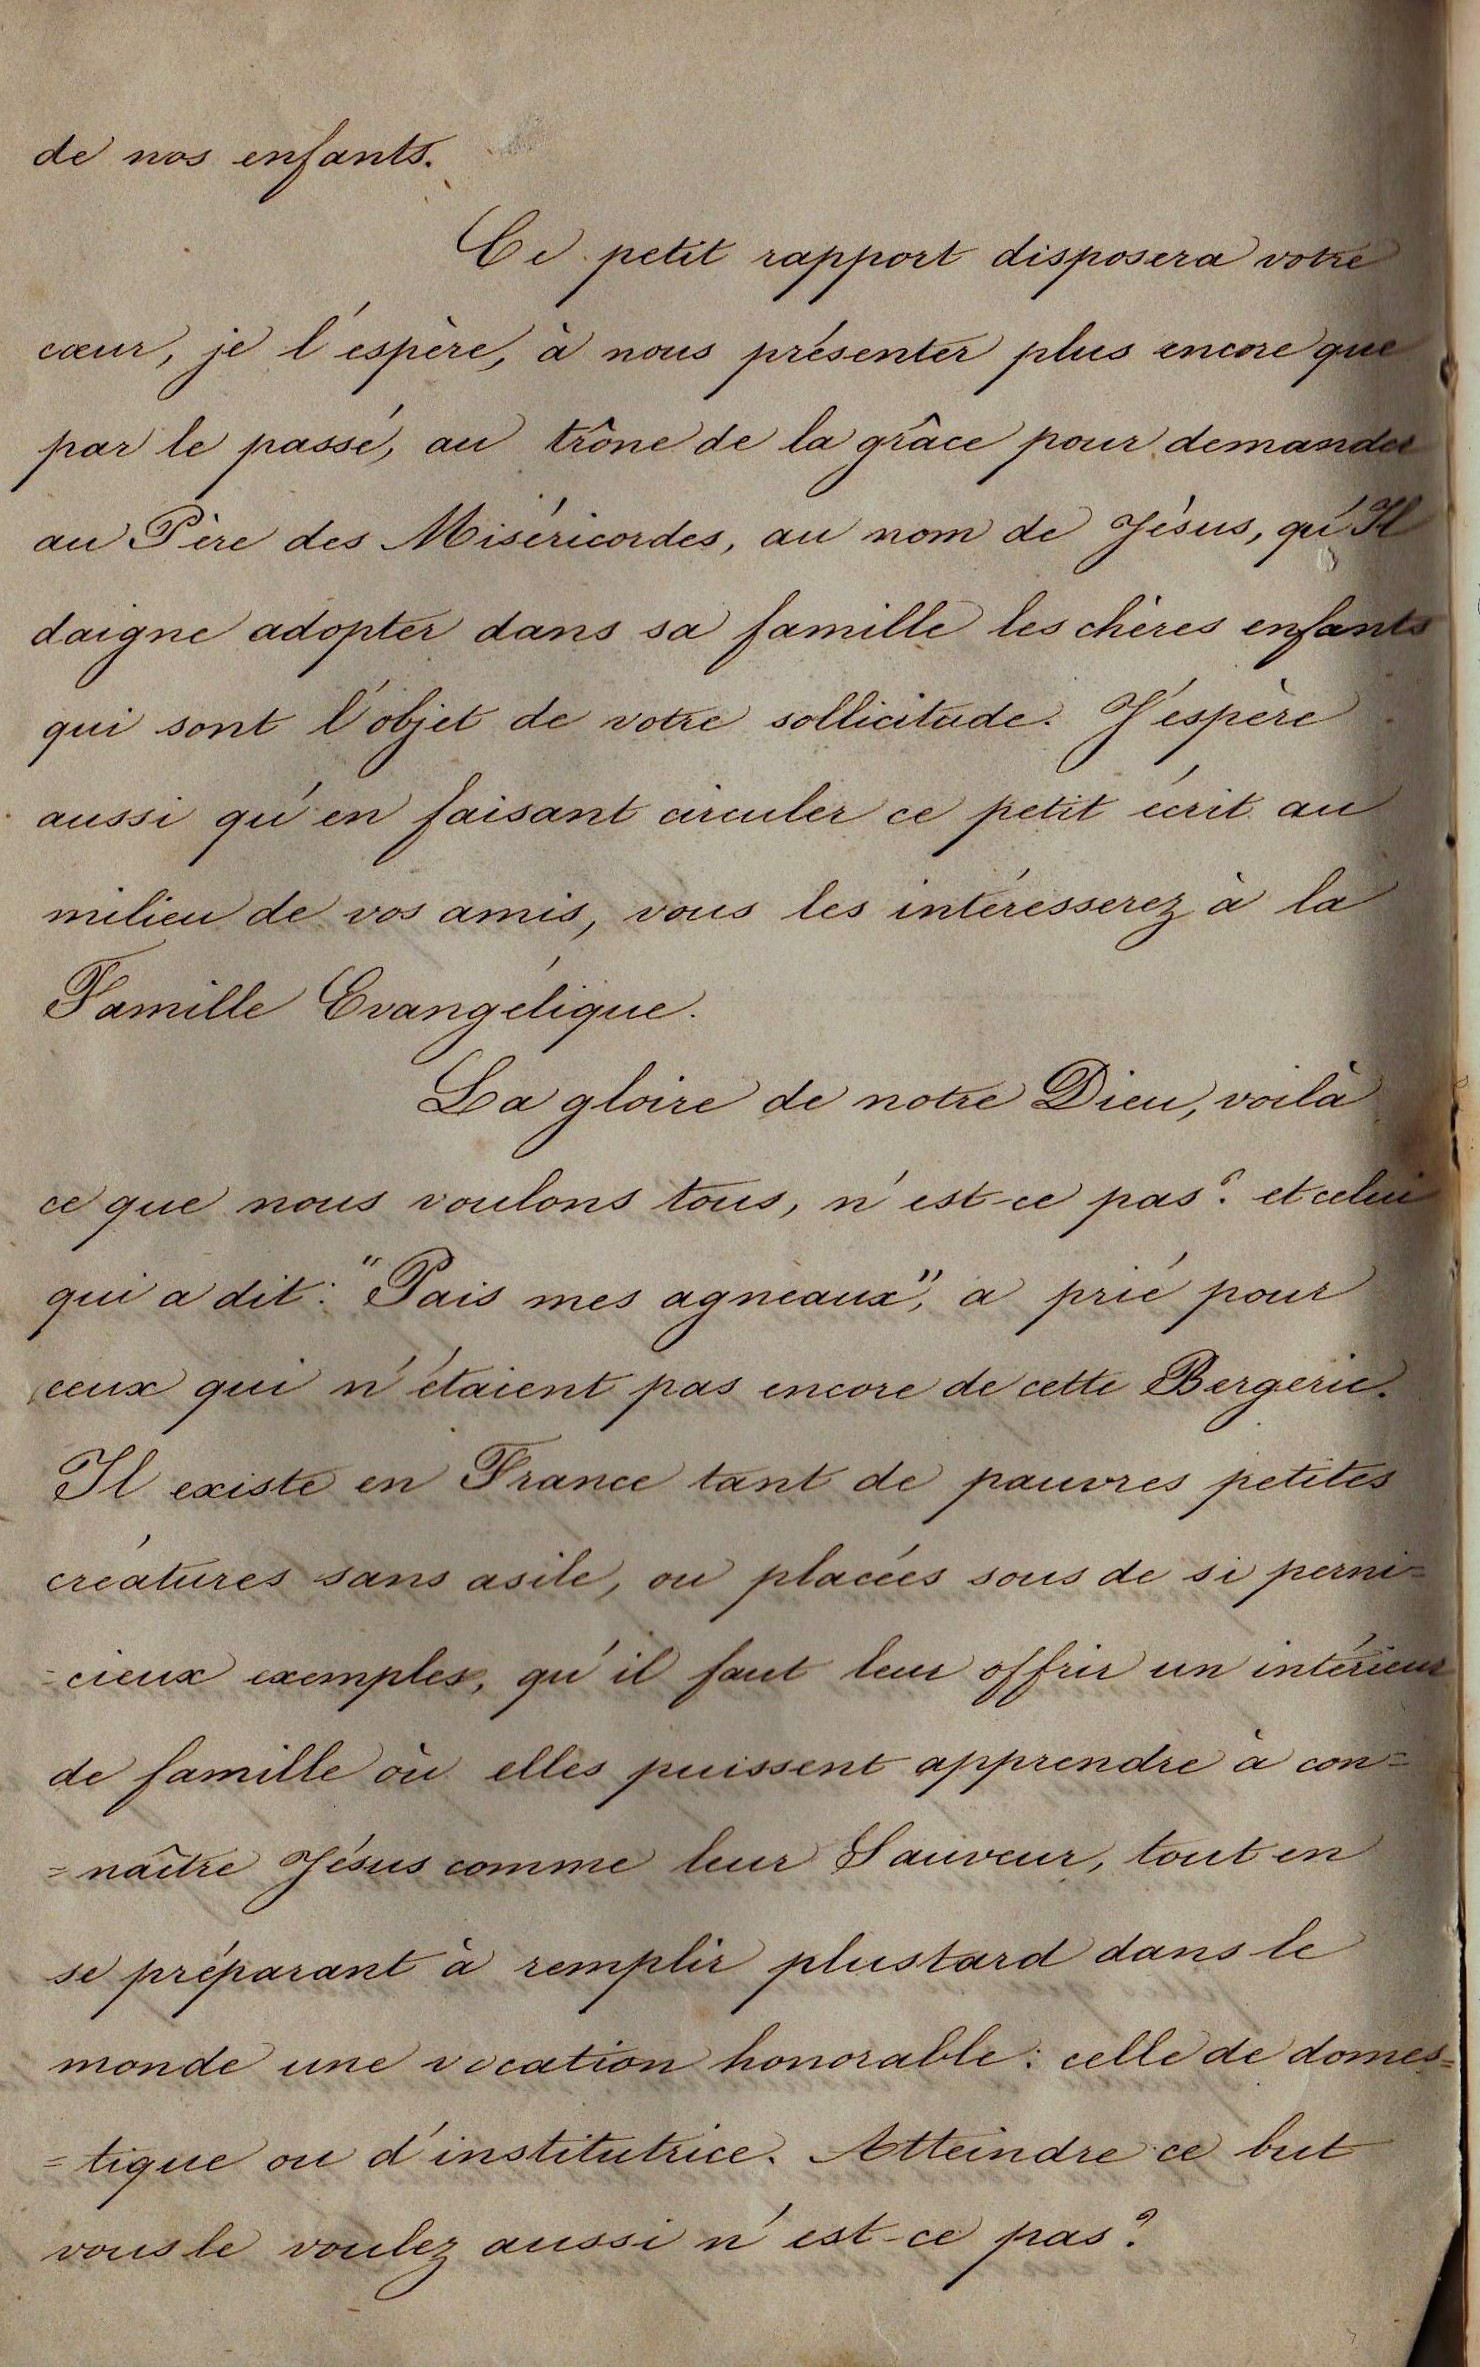 de nos enfants.
Ce petit rapport disposera votre
cœur, je l'espère, à nous présenter plus encore que
par le passé, au trône de la grâce pour demander
au Père des Miséricordes, au nom de Jésus, qu'Il
daigne adopter dans sa famille les chères enfants
qui sont l'objet de votre sollicitude. J'espère
aussi qu'en faisant circuler ce petit écrit au
milieu de vos amis, vous les intéresserez à la
Famille Evangélique.
La gloire de notre Dieu, voilà
ce que nous voulons tous, n'est-ce pas? et celui
qui a dit: "Pais mes agneaux", a prié pour
ceux qui n'étaient pas encore de cette Bergerie.
Il existe en France tant de pauvres petites
créatures sans asile, ou placées sous de si perni=
=cieux exemples, qu'il faut leur offrir un intérieur
de famille où elles puissent apprendre à con=
=naître Jésus comme leur Sauveur, tout en
se préparant à remplir plustard dans le
monde une vocation honorable: celle de domes=
=tique ou d'institutrice. Atteindre ce but
vous le voulez aussi n'est-ce pas?